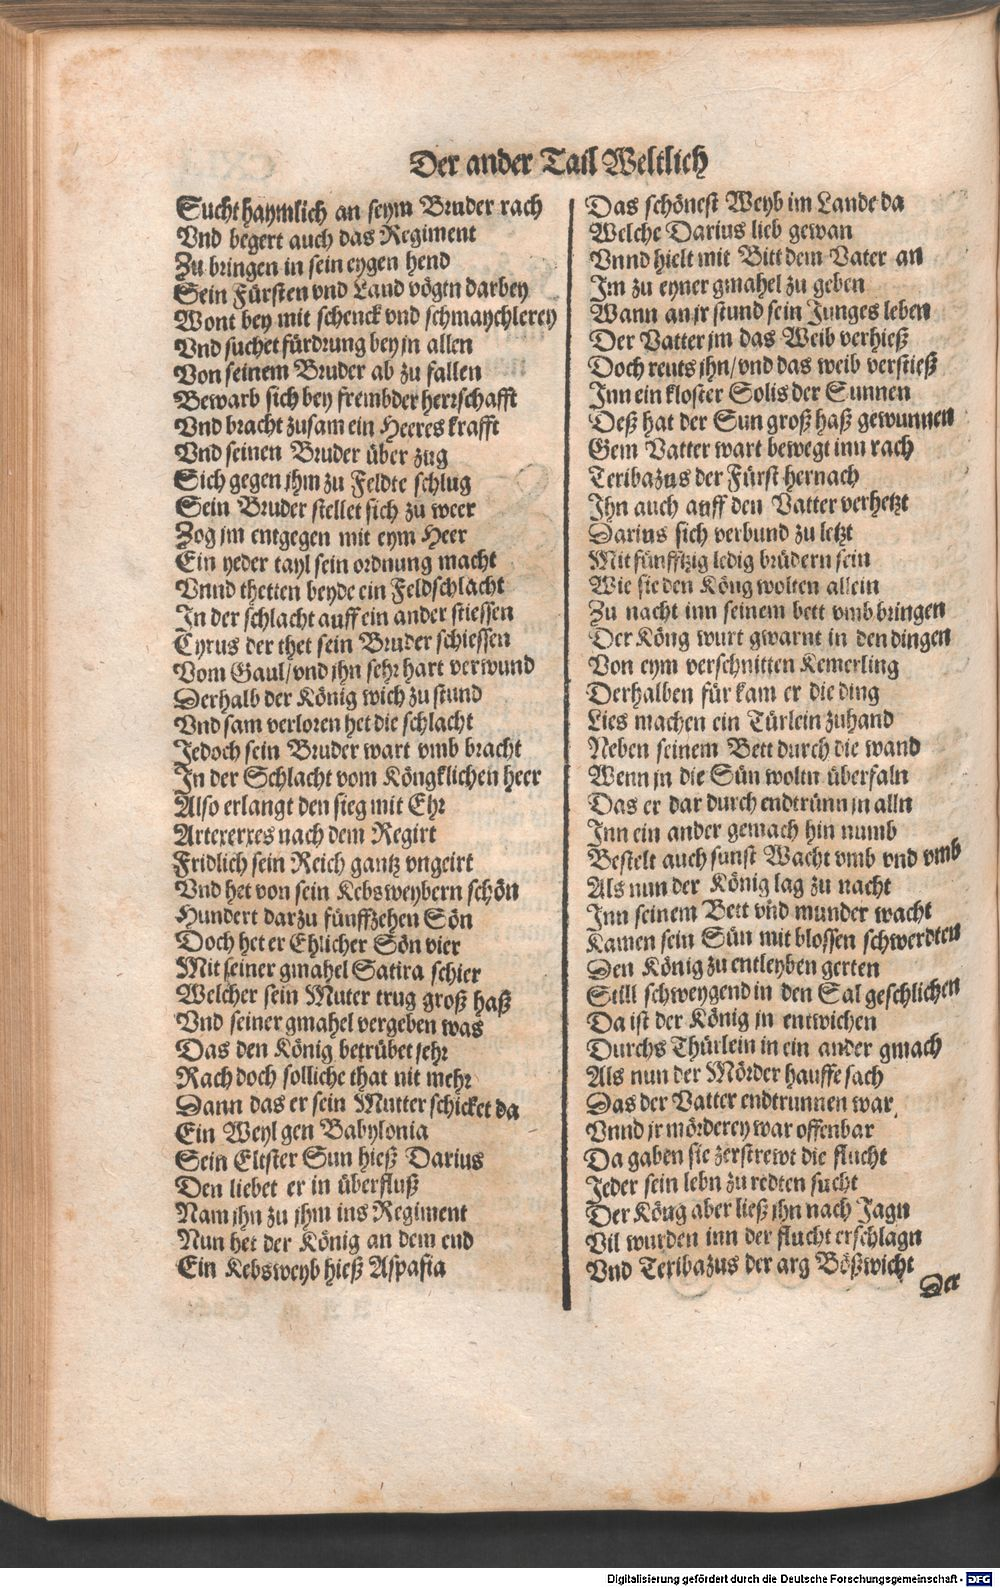 Der ander Tail Weltlich
Sucht haymlich an seym Bruder rach
Vnd begert auch das Regiment
Zu bringen in sein eygen hend
Sein Fürsten vnd Land vögtn darbey
Wont bey mit schenck vnd schmaychlerey
Vnd suchet fürdrung bey jn allen
Von seinem Bruder ab zu fallen
Bewarb sich bey frembder herrschafft
Vnd bracht zusam ein Heeres krafft
Vnd seinen Bruder über zug
Sich gegen jhm zu Feldte schlug
Sein Bruder stellet sich zu weer
Zog jm entgegen mit eym Heer
Ein yeder tayl sein ordnung macht
Vnnd thetten beyde ein Feldschlacht
In der schlacht auff ein ander stiessen
Cyrus der thet sein Bruder schiessen
Vom Gaul/vnd jhn sehr hart verwund
Derhalb der König wich zu stund
Vnd sam verloren het die schlacht
Jedoch sein Bruder wart vmb bracht
In der Schlacht vom Köngklichen heer
Also erlangt den sieg mit Ehr
Artexerxes nach dem Regirt
Fridlich sein Reich gantz vngeirt
Vnd het von sein Kebsweybern schön
Hundert darzu fünffzehen Sön
Doch het er Ehlicher Sön vier
Mit seiner gmahel Satira schier
Welcher sein Muter trug groß haß
Vnd seiner gmahel vergeben was
Das den König betrübet sehr
Rach doch solliche that nit mehr
Dann das er sein Mutter schicket da
Ein Weyl gen Babylonia
Sein Eltster Sun hieß Darius
Den liebet er in überfluß
Nam jhn zu jhm ins Regiment
Nun het der König an dem end
Ein Kebsweyb hieß Aspasia
Das schönest Weyb im Lande da
Welche Darius lieb gewan
Vnnd hielt mit Bitt dem Vater an
Im zu eyner gmahel zu geben
Wann an jr stund sein Junges leben
Der Vatter jm das Weib verhieß
Doch reuts jhn/vnd das weib verstieß
Inn ein kloster Solis der Sunnen
Deß hat der Sun groß haß gewunnen
Gem Vatter wart bewegt inn rach
Teribazus der Fürst hernach
Ihn auch auff den Vatter verhetzt
Darius sich verbund zu letzt
Mit fünfftzig ledig brüdern sein
Wie sie den Köng wolten allein
Zu nacht inn seinem bett vmb bringen
Der Köng wurt gwarnt in den dingen
Von eym verschnitten Kemerling
Derhalben für kam er die ding
Lies machen ein Türlein zuhand
Neben seinem Bett durch die wand
Wenn jn die Sün woltn überfaln
Das er dar durch endtrünn jn alln
Inn ein ander gemach hin numb
Bestelt auch sunst Wacht vmb vnd vmb
Als nun der König lag zu nacht
Inn seinem Bett vnd munder wacht
Kamen sein Sün mit blossen schwerdten
Den König zu entleyben gerten
Still schweygend in den Sal geschlichen
Da ist der König jn entwichen
Durchs Thürlein in ein ander gmach
Als nun der Mörder hauffe sach
Das der Vatter endtrunnen war
Vnnd jr mörderey war offenbar
Da gaben sie zerstrewt die flucht
Jeder sein lebn zu redten sucht
Der Köng aber ließ jhn nach Jagn
Vil wurden inn der flucht erschlagn
Vnd Teribazus der arg Bößwicht
Der
Digitalisierung gefördert durch die Deutsche Forschungsgemeinschaft - DFG